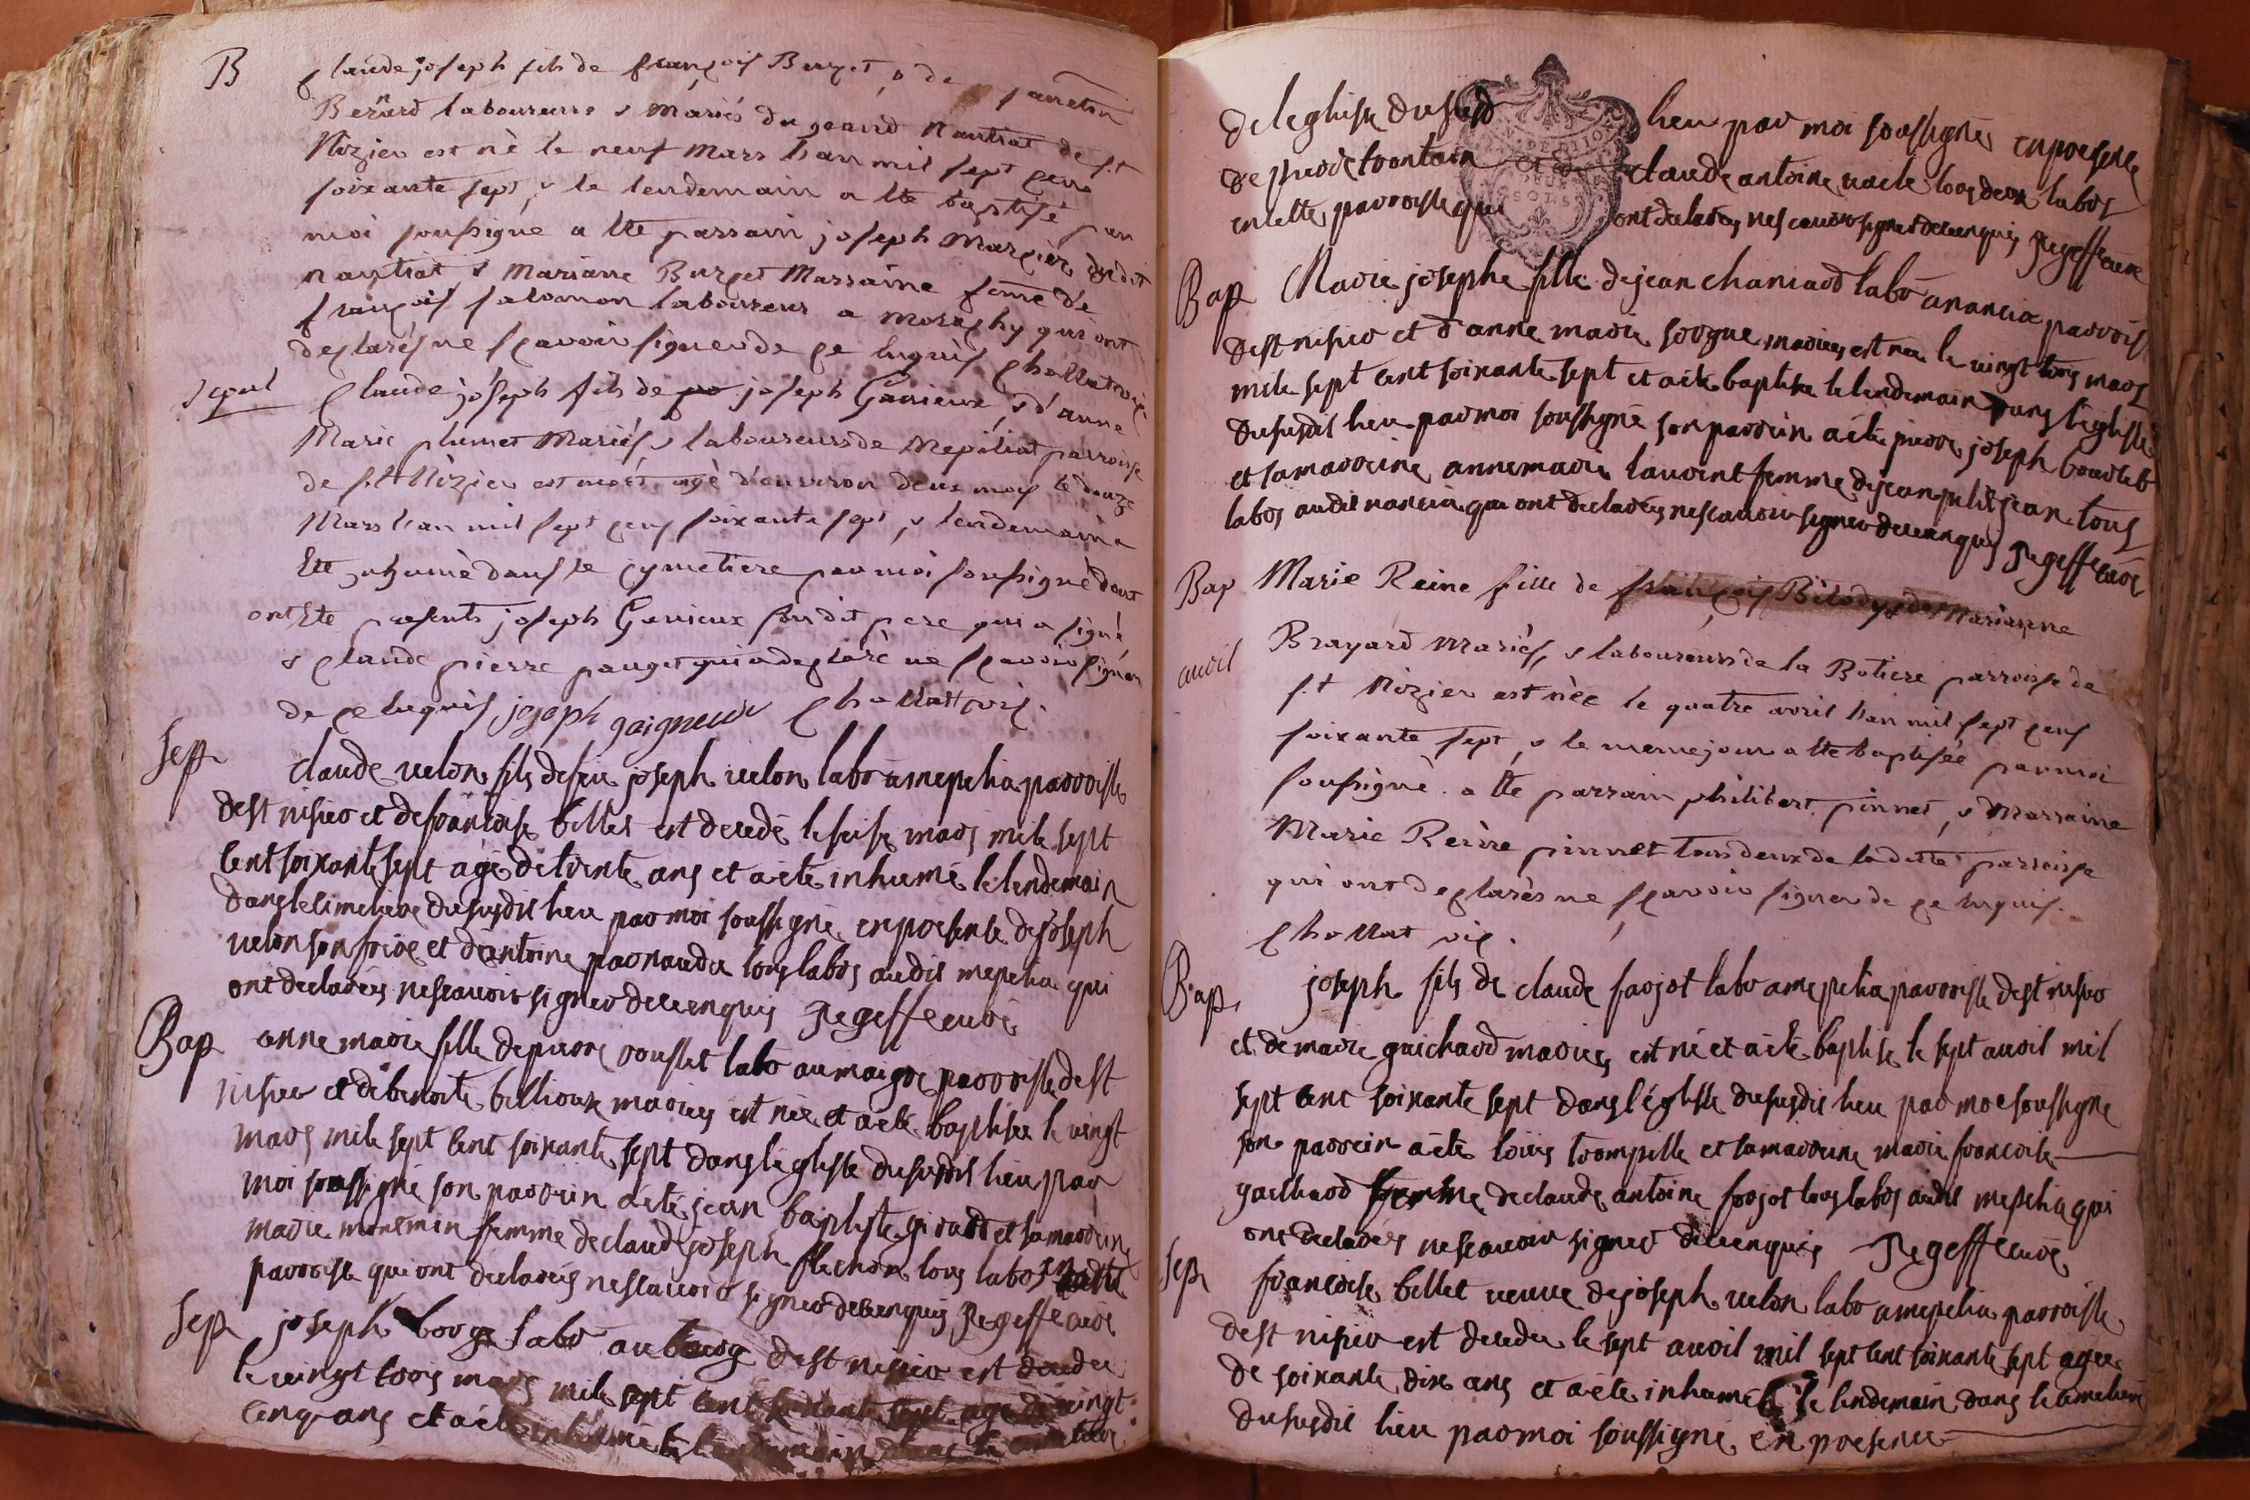 B claude joseph fils de françois Burget, & de janeton
Benard laboureurs & Mariés du grand Nantiat de s.t
Nizier est né le neuf Mars l'an mil sept cens
soixante sept, & le lendemain a ete baptisé par
moi soussigné a ete parrain joseph Margier dudit
nantiat & Mariane Burget Marraine feme de
françois salomon laboureur a qui ont
declarés ne scavoir signer de ce enquis Chollat vic.
Sepul Claude joseph fils de joseph Ganieux, & d'anne
Marie plumet Mariés, & laboureurs de Mepiliat parroisse
de s.t Nizier est mort agé d'environ deux mois le douze
Mars l'an mil sept cens soixante sept, & lendemain a
Ete inhumé dans le cymetiere par moi soussigné dont
ont Ete presents joseph Ganieux susdit pere qui a signé
& claude pierre pauget qui a declaré ne scavoir signer
de ce enquis joseph gaigneux Chollat vic.
Sep claude velon fils de feu joseph velon labor a mepelia parroisse
de st nisier et de francoise billet est decedé le seise mars mile sept
cent soixante sept agé de trente ans et a eté inhumé le lendemain
dans le cimetiere du susdit lieu par moi soussigné en presence de joseph
velon son frere et d'antoine parnaudu tous labos audit mepelia qui
ont declarés ne scavoir signer de ce enquis Jegeffe curé
Bap anne marie fille de pierre rousset labor au maigre parroisse de st
nisier et de benoite billioux mariés est née et a eté baptisée le vingt
mars mile sept cent soixante sept dans l'eglise du susdit lieu par
moi soussigné son parrein a eté jean baptiste giraud et sa marreine
marie monemin femme de claude joseph flechon tous labos en cette
parroisse qui ont declarés ne scavoir signer de ce enquis Jegeffe curé
Sep joseph borge labor au bourg de st nisier est decedé
le vingt trois mars mile sept cent soixante sept agé de vingt
cinq ans et a eté inhumé le lendemain dans le cimetiere
de l'eglise du susd lieu par moi soussigné en presence
de pierre trontain et de claude antoine uacle tous deux labos
en cette parroisse qui ont declarés ne scavoir signer de ce enquis Jegeffe curé
Bap Marie josephe fille de jean chanard labor a nancia parroisse
de st nisier et d'anne marie sorgue mariés est née le vingt trois mars
mile sept cent soixante sept et a eté baptisée le lendemain dans l'eglise
du susdit lieu par moi soussigné son parrein a eté pierre joseph
et sa marreine anne marie laurent femme de jean petitjean tous
labos audit nancia qui ont declarés ne scavoir signer de ce enquis Jegeffe curé
Bap Marie Reine fille de françois & de Marianne
avril Brayard Mariés, & laboureurs de la Botiere parroisse de
s.t Nizier est née le quatre avril l'an mil sept cens
soixante sept, & le meme jour a ete baptisée par moi
soussigné. a ete parrain philibert pinnet, & Marraine
Marie Reine pinnet tous deux de la ditte parroisse
qui ont declarés ne scavoir signer de ce enquis.
Chollat vic.
Bap joseph fils de claude farjot labor a mepelia parroisse de st nisier
et de marie guichard mariés est né et a eté baptisé le sept avril mil
sept cent soixante sept dans l'église du susdit lieu par moi soussigné
son parrein a eté louis trompille et sa marreine marie francoise
gaillard femme de claude antoine farjot tous labos audit mepelia qui
ont declarés ne scavoir signer de ce enquis Jegeffe curé
Sep francoise billet veuve de joseph velon labor a mepelia parroisse
de st nisier est decedée le sept avril mil sept cent soixante sept agée
de soixante dix ans et a eté inhumé le lendemain dans le cimetiere
du susdit lieu par moi soussigné en presence